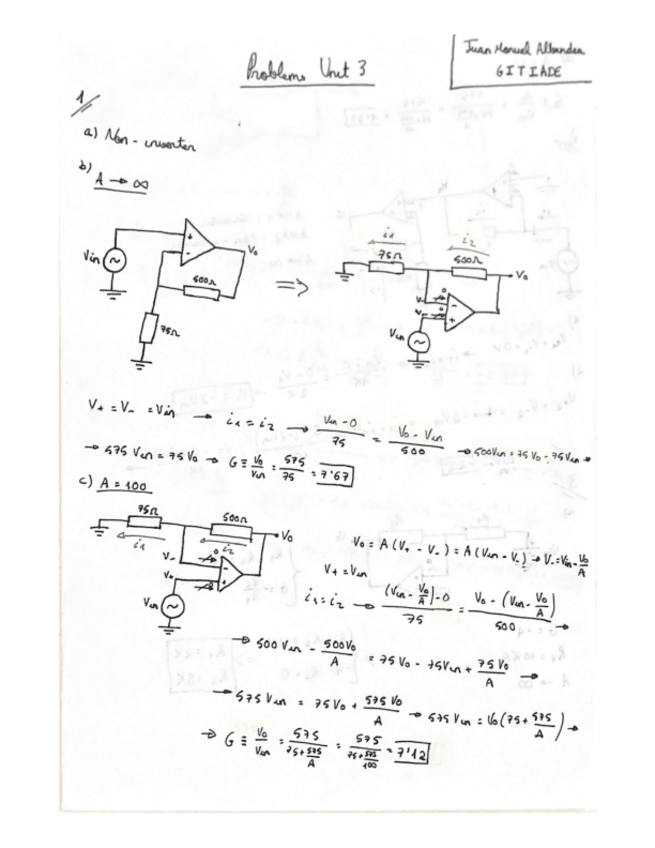 Problems Unit 3
Juan Manuel
GITIADE
1
a) Non-inverter
b) A → ∞
Vin + - Vo 500Ω 75Ω
⇒
i1 75Ω i2 500Ω Vo V- V+ 0 0 - + Vin
V+ = V- = Vin → i1 = i2 → (Vin - 0)/75 = (Vo - Vin)/500 → 500Vin = 75Vo - 75Vin →
→ 575 Vin = 75 Vo → G ≡ Vo/Vin = 575/75 = 7'67
c) A = 100
75Ω i1 500Ω i2 Vo V- V+ 0 - + Vin
Vo = A(V+ - V-) = A(Vin - V-) → V- = Vin - Vo/A
V+ = Vin
i1 = i2 → ((Vin - Vo/A) - 0)/75 = (Vo - (Vin - Vo/A))/500 →
→ 500 Vin - 500Vo/A = 75 Vo - 75Vin + 75 Vo/A →
→ 575 Vin = 75 Vo + 575 Vo/A → 575 Vin = Vo(75 + 575/A) →
→ G ≡ Vo/Vin = 575/(75 + 575/A) = 575/(75 + 575/100) = 7'12